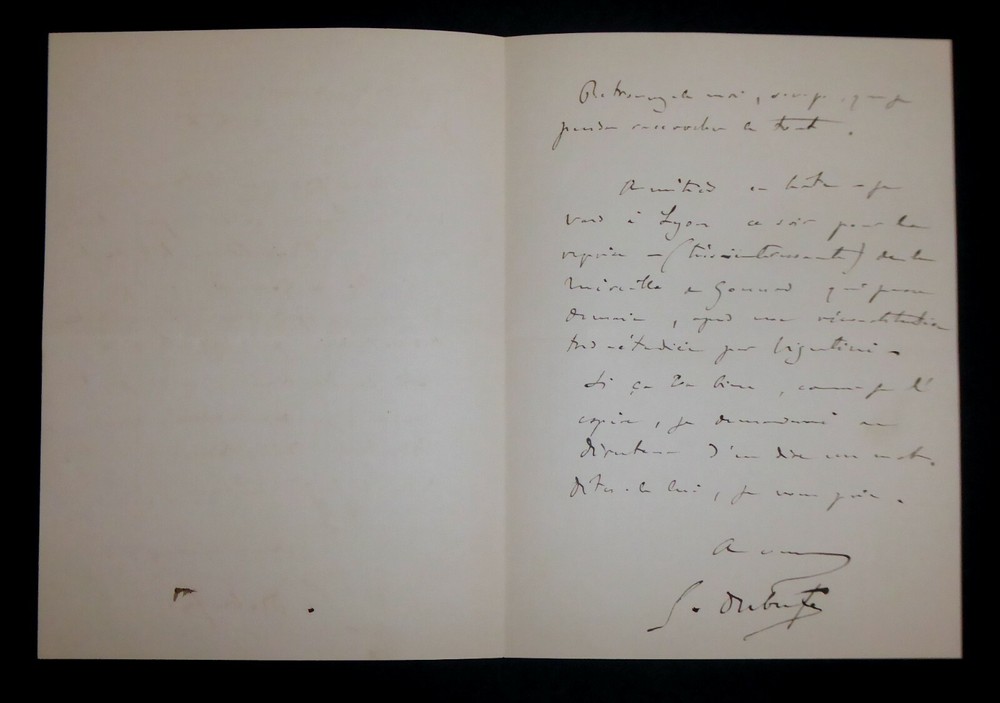 Retrouvez le moi, s.v.p., que je
puisse raccrocher le tout.
Amitiés en hâte - je
vais à Lyon ce soir pour la
reprise - (très intéressante) de la
Mireille de Gounod qui passe
demain, après une reconstitution
très étudiée par
Si ça va bien, comme je l'
espère, je demanderai au
directeur d'en dire un mot.
Dites-le lui, je vous prie.
A vous
G. Dubufe